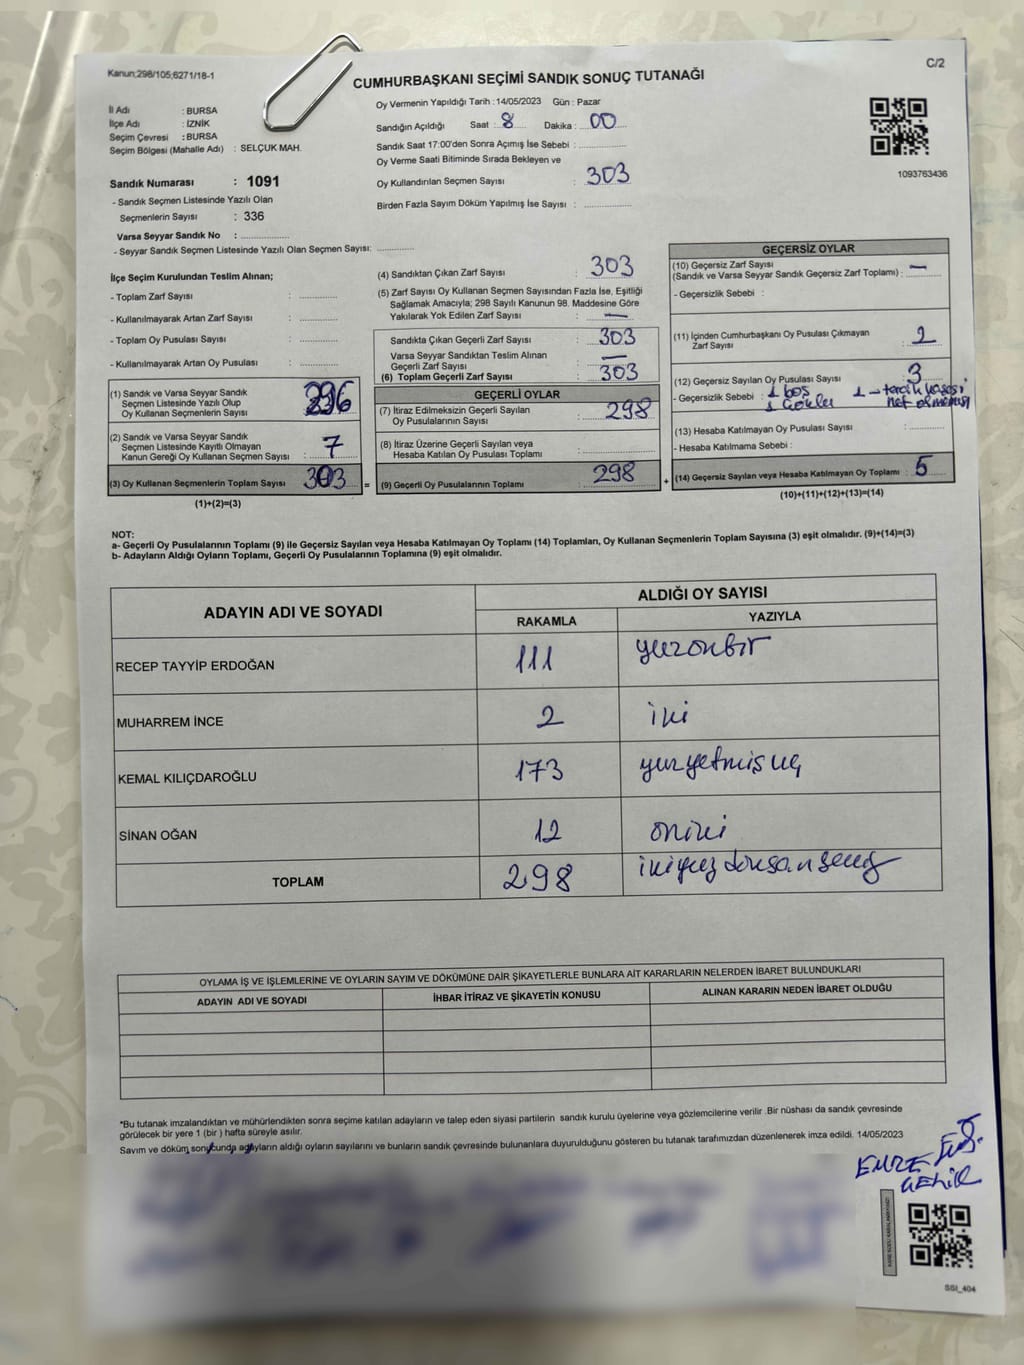 Kanun;298/105;6271/18-1
C/2
CUMHURBAŞKANI SEÇİMİ SANDIK SONUÇ TUTANAĞI
İl Adı : BURSA
İlçe Adı : İZNİK
Seçim Çevresi : BURSA
Seçim Bölgesi (Mahalle Adı) : SELÇUK MAH.
Oy Vermenin Yapıldığı Tarih : 14/05/2023 Gün : Pazar
Sandığın Açıldığı Saat : 8 Dakika : 00
Sandık Saat 17:00'den Sonra Açılmış İse Sebebi :
Oy Verme Saati Bitiminde Sırada Bekleyen ve
Oy Kullandırılan Seçmen Sayısı : 303
Birden Fazla Sayım Döküm Yapılmış İse Sayısı :
1093763436
Sandık Numarası : 1091
- Sandık Seçmen Listesinde Yazılı Olan
Seçmenlerin Sayısı : 336
Varsa Seyyar Sandık No :
- Seyyar Sandık Seçmen Listesinde Yazılı Olan Seçmen Sayısı:
İlçe Seçim Kurulundan Teslim Alınan;
- Toplam Zarf Sayısı :
- Kullanılmayarak Artan Zarf Sayısı :
- Toplam Oy Pusulası Sayısı :
- Kullanılmayarak Artan Oy Pusulası :
(1) Sandık ve Varsa Seyyar Sandık
Seçmen Listesinde Yazılı Olup
Oy Kullanan Seçmenlerin Sayısı : 296
(2) Sandık ve Varsa Seyyar Sandık
Seçmen Listesinde Kayıtlı Olmayan
Kanun Gereği Oy Kullanan Seçmen Sayısı : 7
(3) Oy Kullanan Seçmenlerin Toplam Sayısı : 303 =
(1)+(2)=(3)
(4) Sandıktan Çıkan Zarf Sayısı : 303
(5) Zarf Sayısı Oy Kullanan Seçmen Sayısından Fazla İse, Eşitliği
Sağlamak Amacıyla; 298 Sayılı Kanunun 98. Maddesine Göre
Yakılarak Yok Edilen Zarf Sayısı : —
Sandıkta Çıkan Geçerli Zarf Sayısı : 303
Varsa Seyyar Sandıktan Teslim Alınan
Geçerli Zarf Sayısı : —
(6) Toplam Geçerli Zarf Sayısı : 303
GEÇERLİ OYLAR
(7) İtiraz Edilmeksizin Geçerli Sayılan
Oy Pusulalarının Sayısı : 298
(8) İtiraz Üzerine Geçerli Sayılan veya
Hesaba Katılan Oy Pusulası Toplamı :
(9) Geçerli Oy Pusulalarının Toplamı : 298 +
GEÇERSİZ OYLAR
(10) Geçersiz Zarf Sayısı
(Sandık ve Varsa Seyyar Sandık Geçersiz Zarf Toplamı) : —
- Geçersizlik Sebebi :
(11) İçinden Cumhurbaşkanı Oy Pusulası Çıkmayan
Zarf Sayısı : 2
(12) Geçersiz Sayılan Oy Pusulası Sayısı : 3
- Geçersizlik Sebebi : 1 boş 1 – tercih kaşesi
net olmaması
(13) Hesaba Katılmayan Oy Pusulası Sayısı :
- Hesaba Katılmama Sebebi :
(14) Geçersiz Sayılan veya Hesaba Katılmayan Oy Toplamı : 5
(10)+(11)+(12)+(13)=(14)
NOT:
a- Geçerli Oy Pusulalarının Toplamı (9) ile Geçersiz Sayılan veya Hesaba Katılmayan Oy Toplamı (14) Toplamları, Oy Kullanan Seçmenlerin Toplam Sayısına (3) eşit olmalıdır. (9)+(14)=(3)
b- Adayların Aldığı Oyların Toplamı, Geçerli Oy Pusulalarının Toplamına (9) eşit olmalıdır.
ADAYIN ADI VE SOYADI
ALDIĞI OY SAYISI
RAKAMLA YAZIYLA
RECEP TAYYİP ERDOĞAN 111 yüzonbir
MUHARREM İNCE 2 iki
KEMAL KILIÇDAROĞLU 173 yüzyetmişüç
SİNAN OĞAN 12 oniki
TOPLAM 298 ikiyüzdoksansekiz
OYLAMA İŞ VE İŞLEMLERİNE VE OYLARIN SAYIM VE DÖKÜMÜNE DAİR ŞİKAYETLERLE BUNLARA AİT KARARLARIN NELERDEN İBARET BULUNDUKLARI
ADAYIN ADI VE SOYADI İHBAR İTİRAZ VE ŞİKAYETİN KONUSU ALINAN KARARIN NEDEN İBARET OLDUĞU
*Bu tutanak imzalandıktan ve mühürlendikten sonra seçime katılan adayların ve talep eden siyasi partilerin sandık kurulu üyelerine veya gözlemcilerine verilir .Bir nüshası da sandık çevresinde
görülecek bir yere 1 (bir ) hafta süreyle asılır.
Sayım ve döküm sonucunda adayların aldığı oyların sayılarını ve bunların sandık çevresinde bulunanlara duyurulduğunu gösteren bu tutanak tarafımızdan düzenlenerek imza edildi. 14/05/2023
EMRE
SSI_404